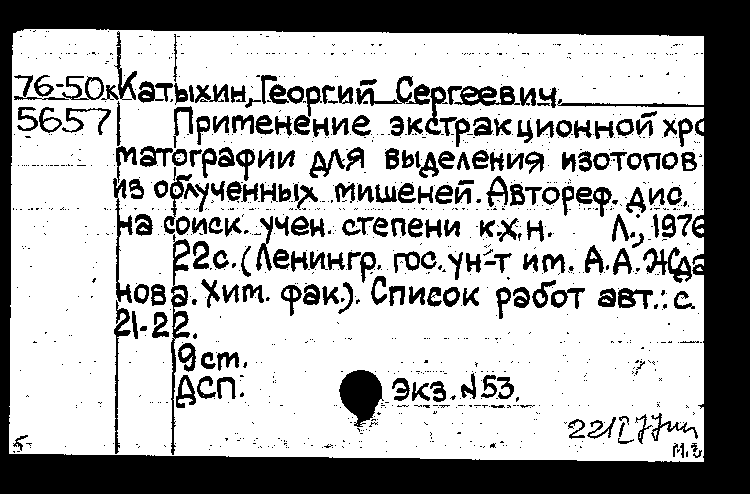 76-50к Катыхин, Георгий Сергеевич.
5657 Применение экстракционной хро
матографии для выделения изотопов
из облученных мишеней. Автореф. дис.
на соиск. учен. степени к.х.н. Л., 1976
22с. (Ленингр. гос. ун-т им. А.А. Жда
нова. Хим. фак.). Список работ авт.: с.
21-22.
9 ст.
ДСП. Экз. N53.